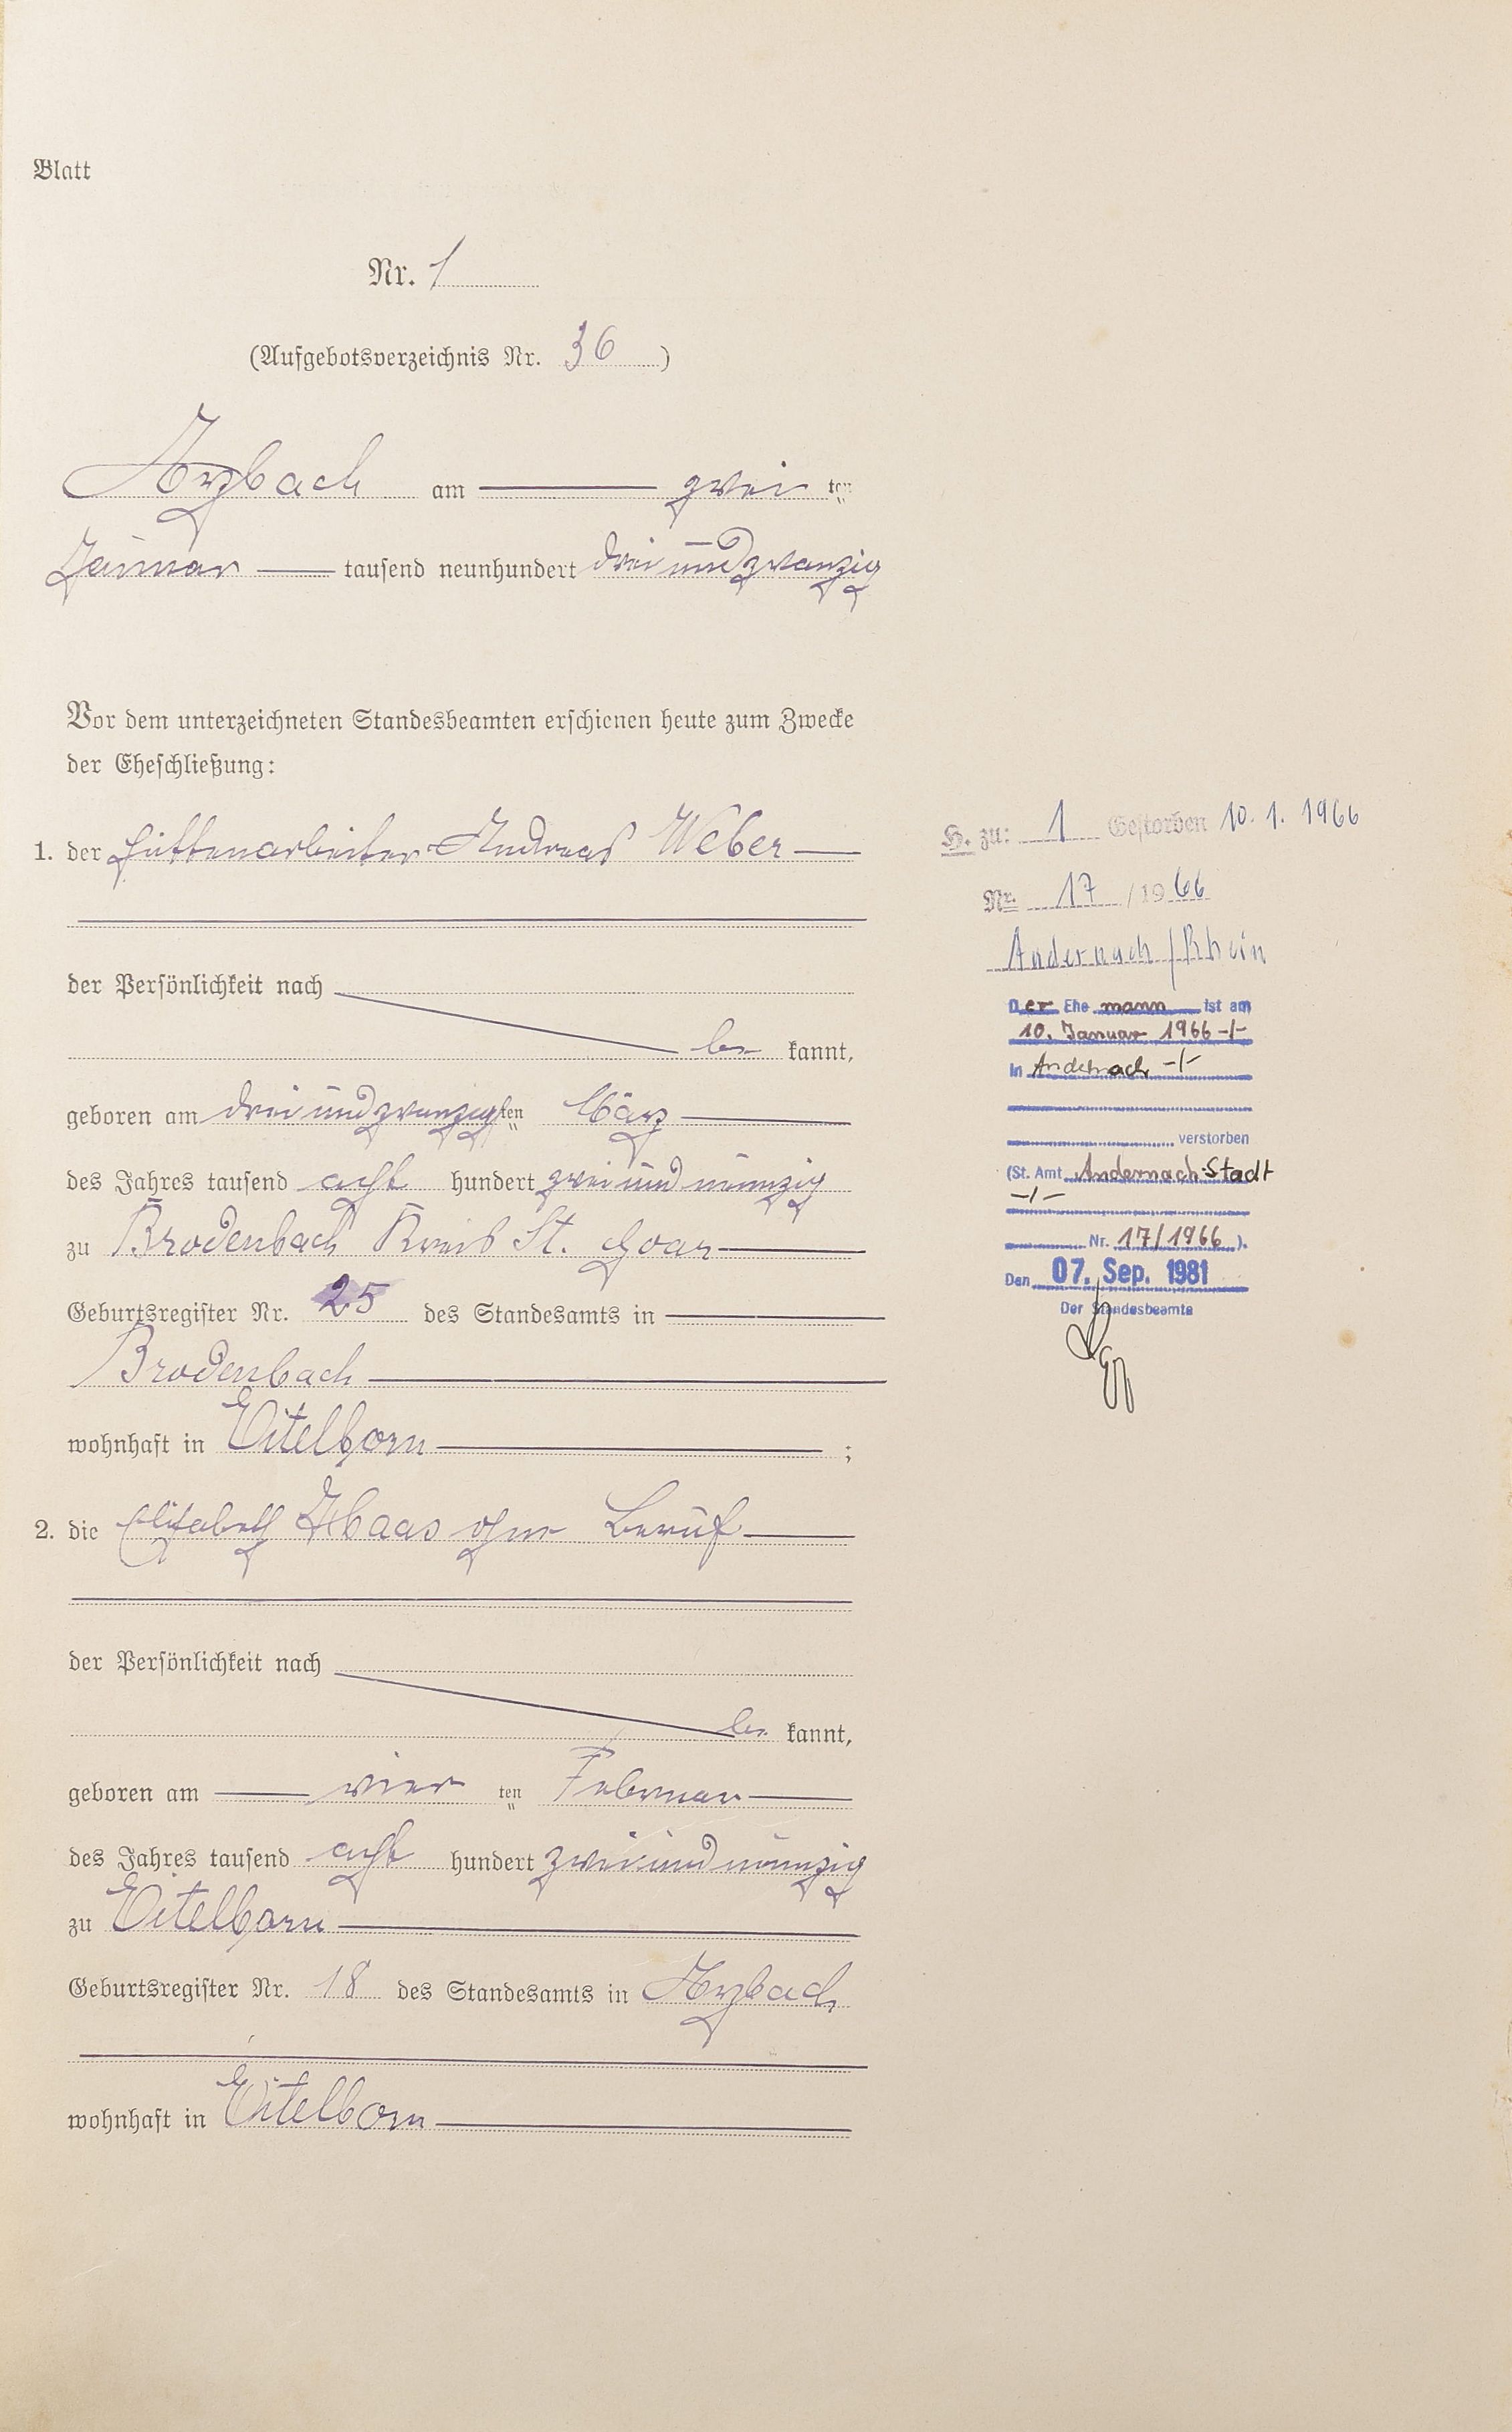 Blatt
Nr. 1
(Aufgebotsverzeichnis Nr. 36)
Arzbach am zwei ten
Januar tausend neunhundert dreiundzwanzig
Vor dem unterzeichneten Standesbeamten erschienen heute zum Zwecke
der Eheschließung:
1. der Hüttenarbeiter Andreas Weber
der Persönlichkeit nach
be kannt,
geboren am dreiundzwanzigsten März
des Jahres tausend acht hundert zweiundneunzig
zu Brodenbach Kreis St. Goar
Geburtsregister Nr. 25 des Standesamts in
Brodenbach
wohnhaft in Eitelborn ;
2. die Elisabeth Haas ohne Beruf
der Persönlichkeit nach
be kannt,
geboren am vier ten Februar
des Jahres tausend acht hundert zweiundneunzig
zu Eitelborn
Geburtsregister Nr. 18 des Standesamts in Arzbach
wohnhaft in Eitelborn
H. zu: 1 Gestorben 10. 1. 1966
Nr. 17 / 1966
Andernach / Rhein
Der Ehe mann ist am
10. Januar 1966 -/-
in Andernach -/-
verstorben
(St. Amt Andernach-Stadt
-/-
Nr. 17/1966 ).
Den 07. Sep. 1981
Der Standesbeamte